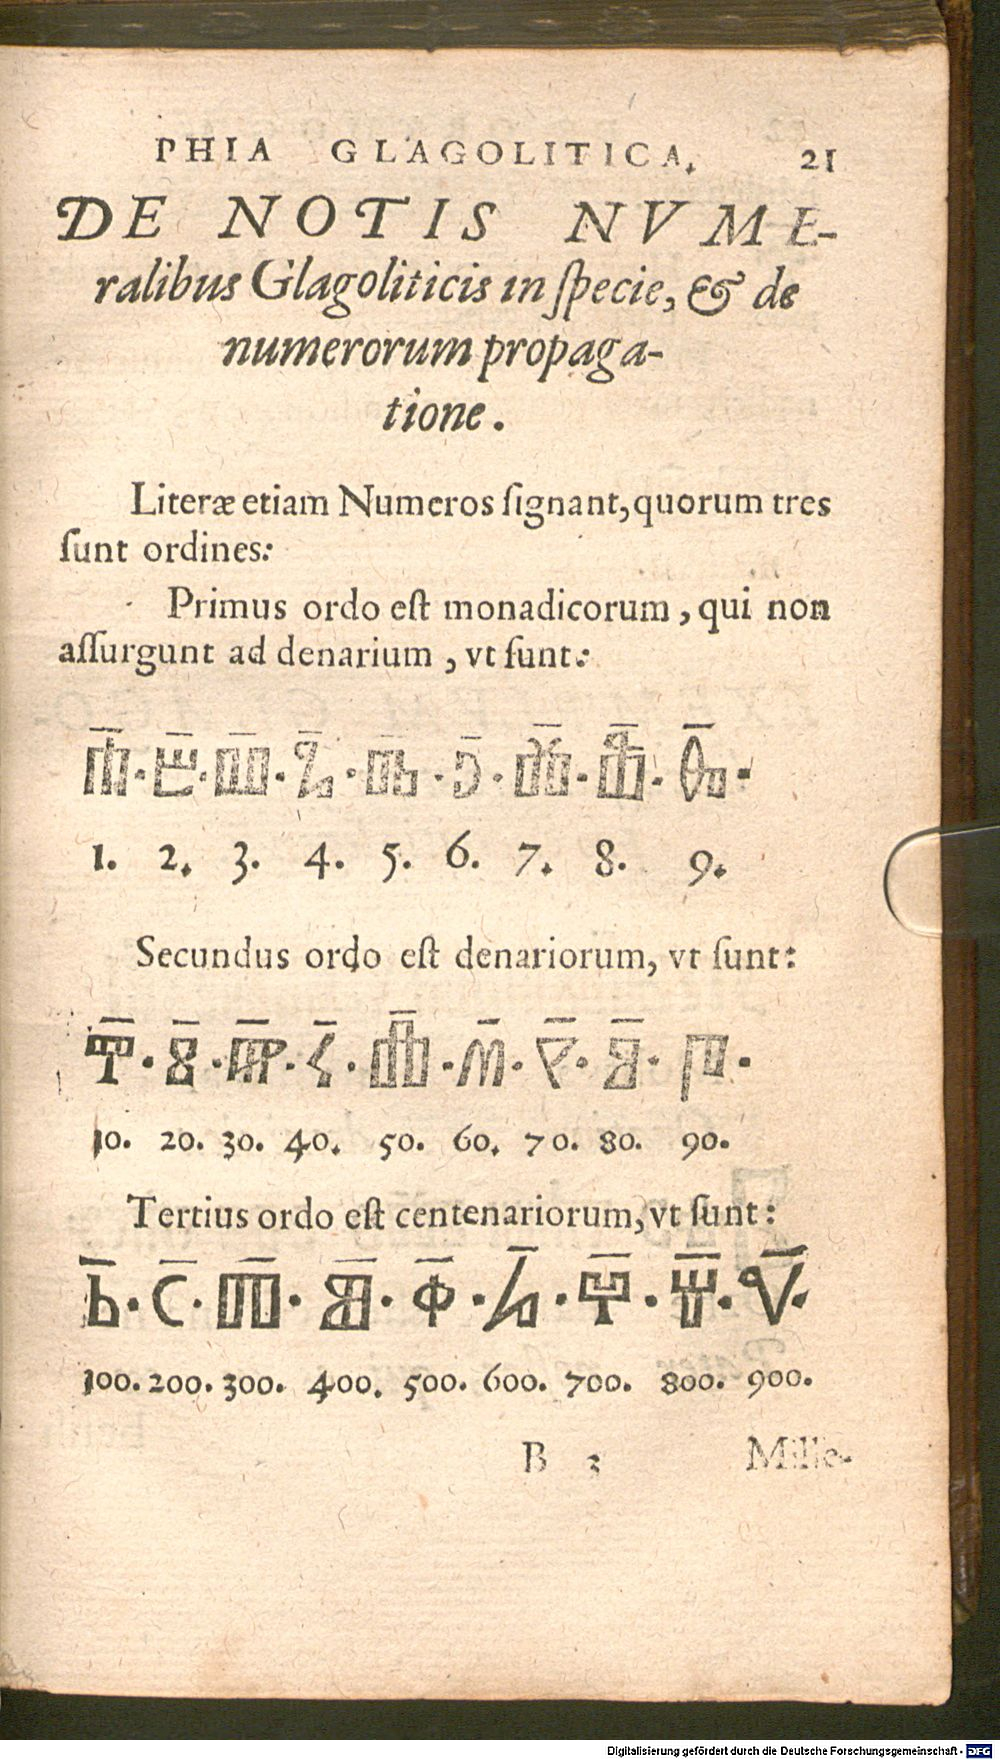 PHIA GLAGOLITICA. 21
DE NOTIS NVME-
ralibus Glagoliticis in ſpecie, & de
numerorum propaga-
tione.
Literæ etiam Numeros ſignant, quorum tres
ſunt ordines:
Primus ordo eſt monadicorum, qui non
aſſurgunt ad denarium, vt ſunt:
Ⰰ̅·Ⰱ̅·Ⰲ̅·Ⰳ̅·Ⰴ̅·Ⰵ̅·Ⰶ̅·Ⰷ̅·Ⰸ̅·
1. 2. 3. 4. 5. 6. 7. 8. 9.
Secundus ordo eſt denariorum, vt ſunt:
Ⰺ̅·Ⰻ̅·Ⰼ̅·Ⰽ̅·Ⰾ̅·Ⰿ̅·Ⱀ̅·Ⱁ̅·Ⱂ̅·
10. 20. 30. 40. 50. 60. 70. 80. 90.
Tertius ordo eſt centenariorum, vt ſunt:
Ⱃ̅·Ⱄ̅·Ⱅ̅·Ⱆ̅·Ⱇ̅·Ⱈ̅·Ⱉ̅·Ⱋ̅·Ⱌ̅·
100. 200. 300. 400. 500. 600. 700. 800. 900.
B 3 Mille-
Digitalisierung gefördert durch die Deutsche Forschungsgemeinschaft - DFG